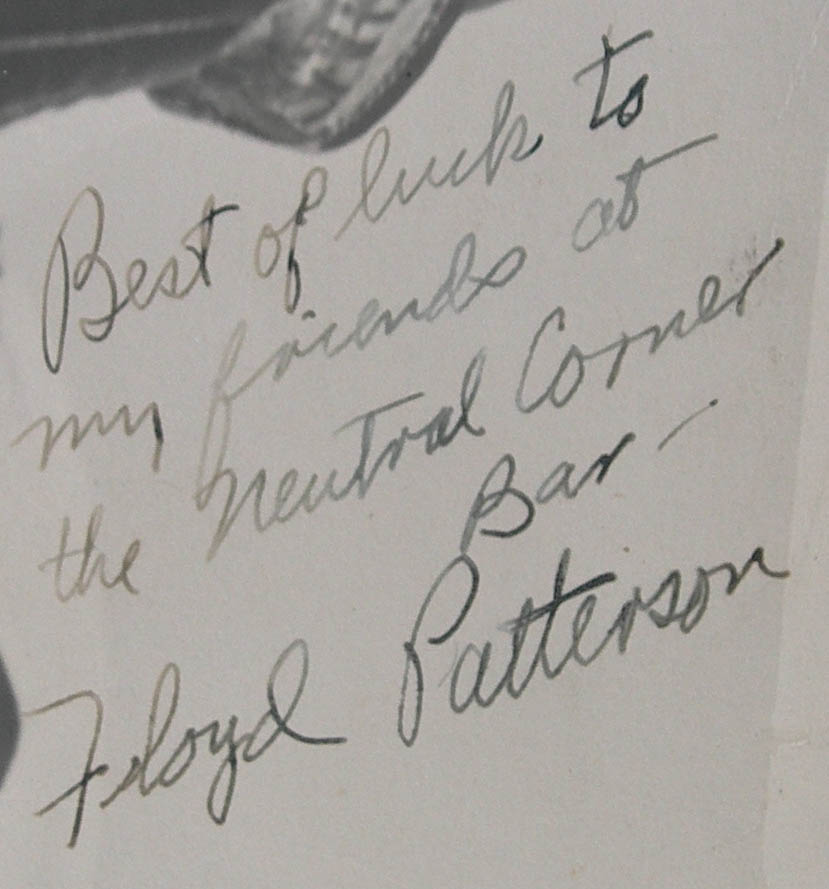 Best of luck to
my friends at
the Neutral Corner
Bar-
Floyd Patterson